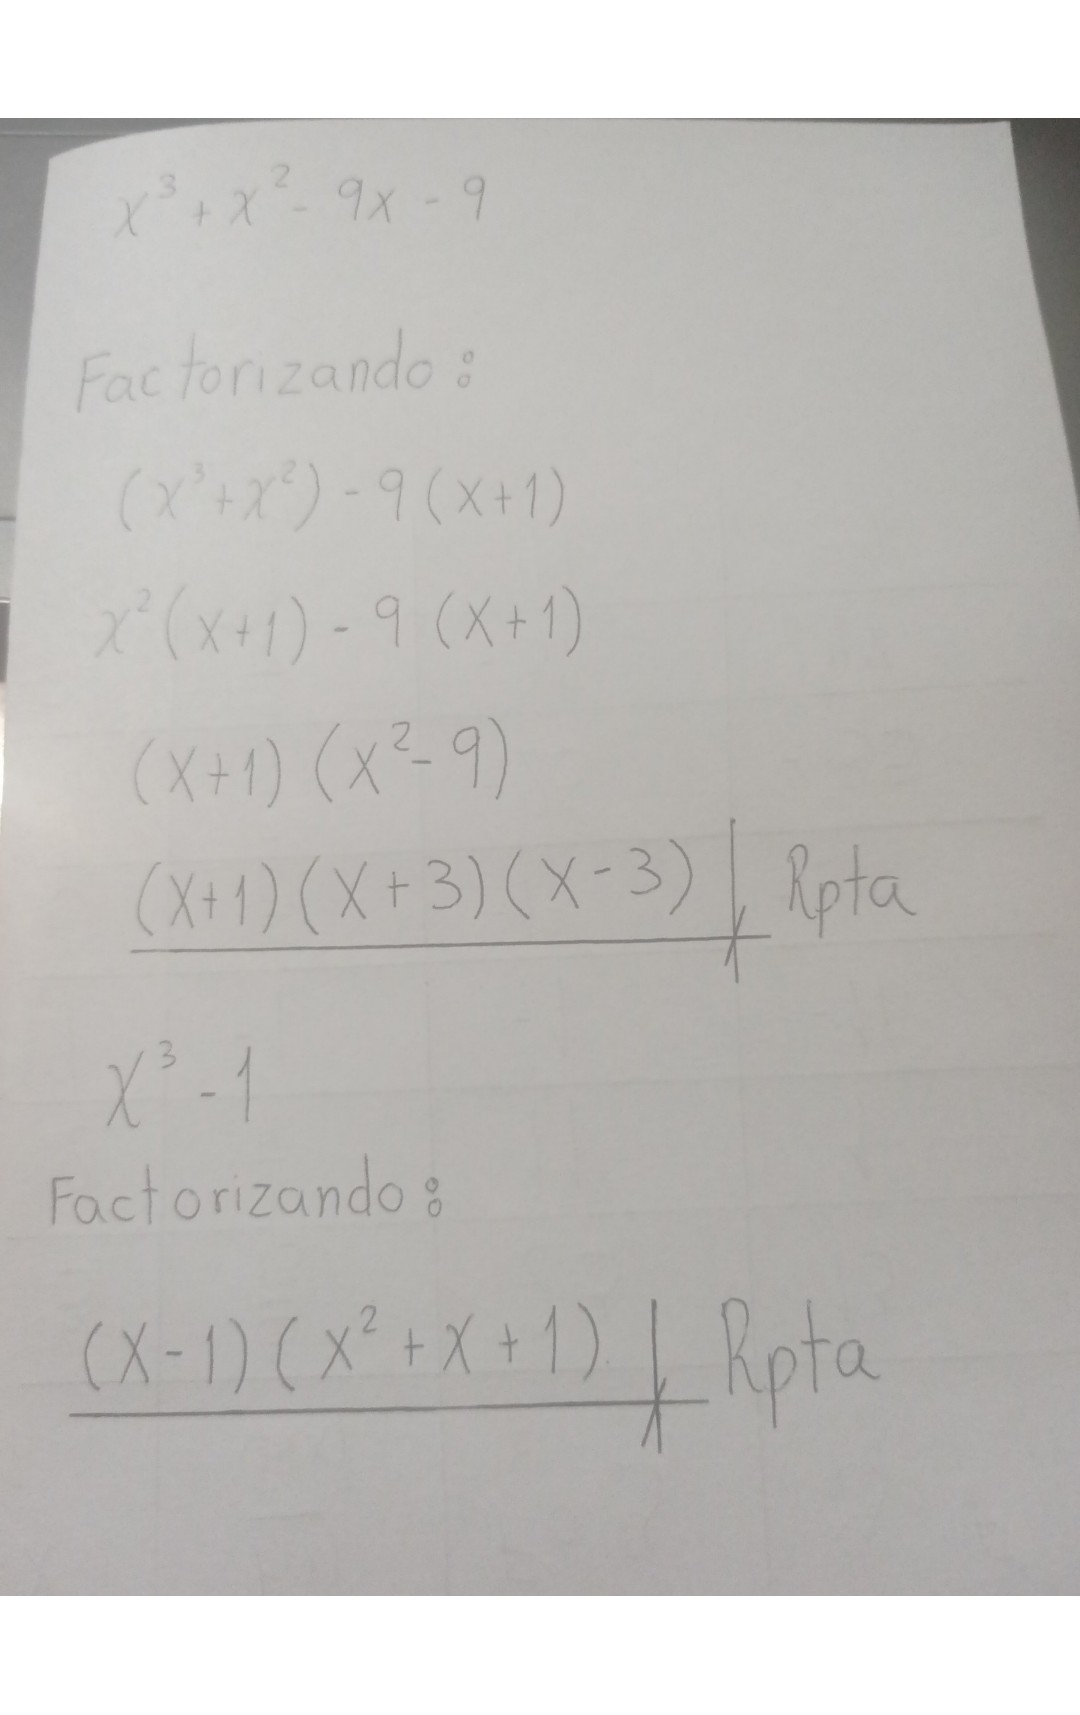 x³ + x² - 9x - 9
Factorizando:
(x³+x²) - 9(x+1)
x²(x+1) - 9 (x+1)
(x+1) (x² - 9)
(x+1)(x+3)(x-3) Rpta
x³ - 1
Factorizando:
(x-1)(x² + x + 1) Rpta